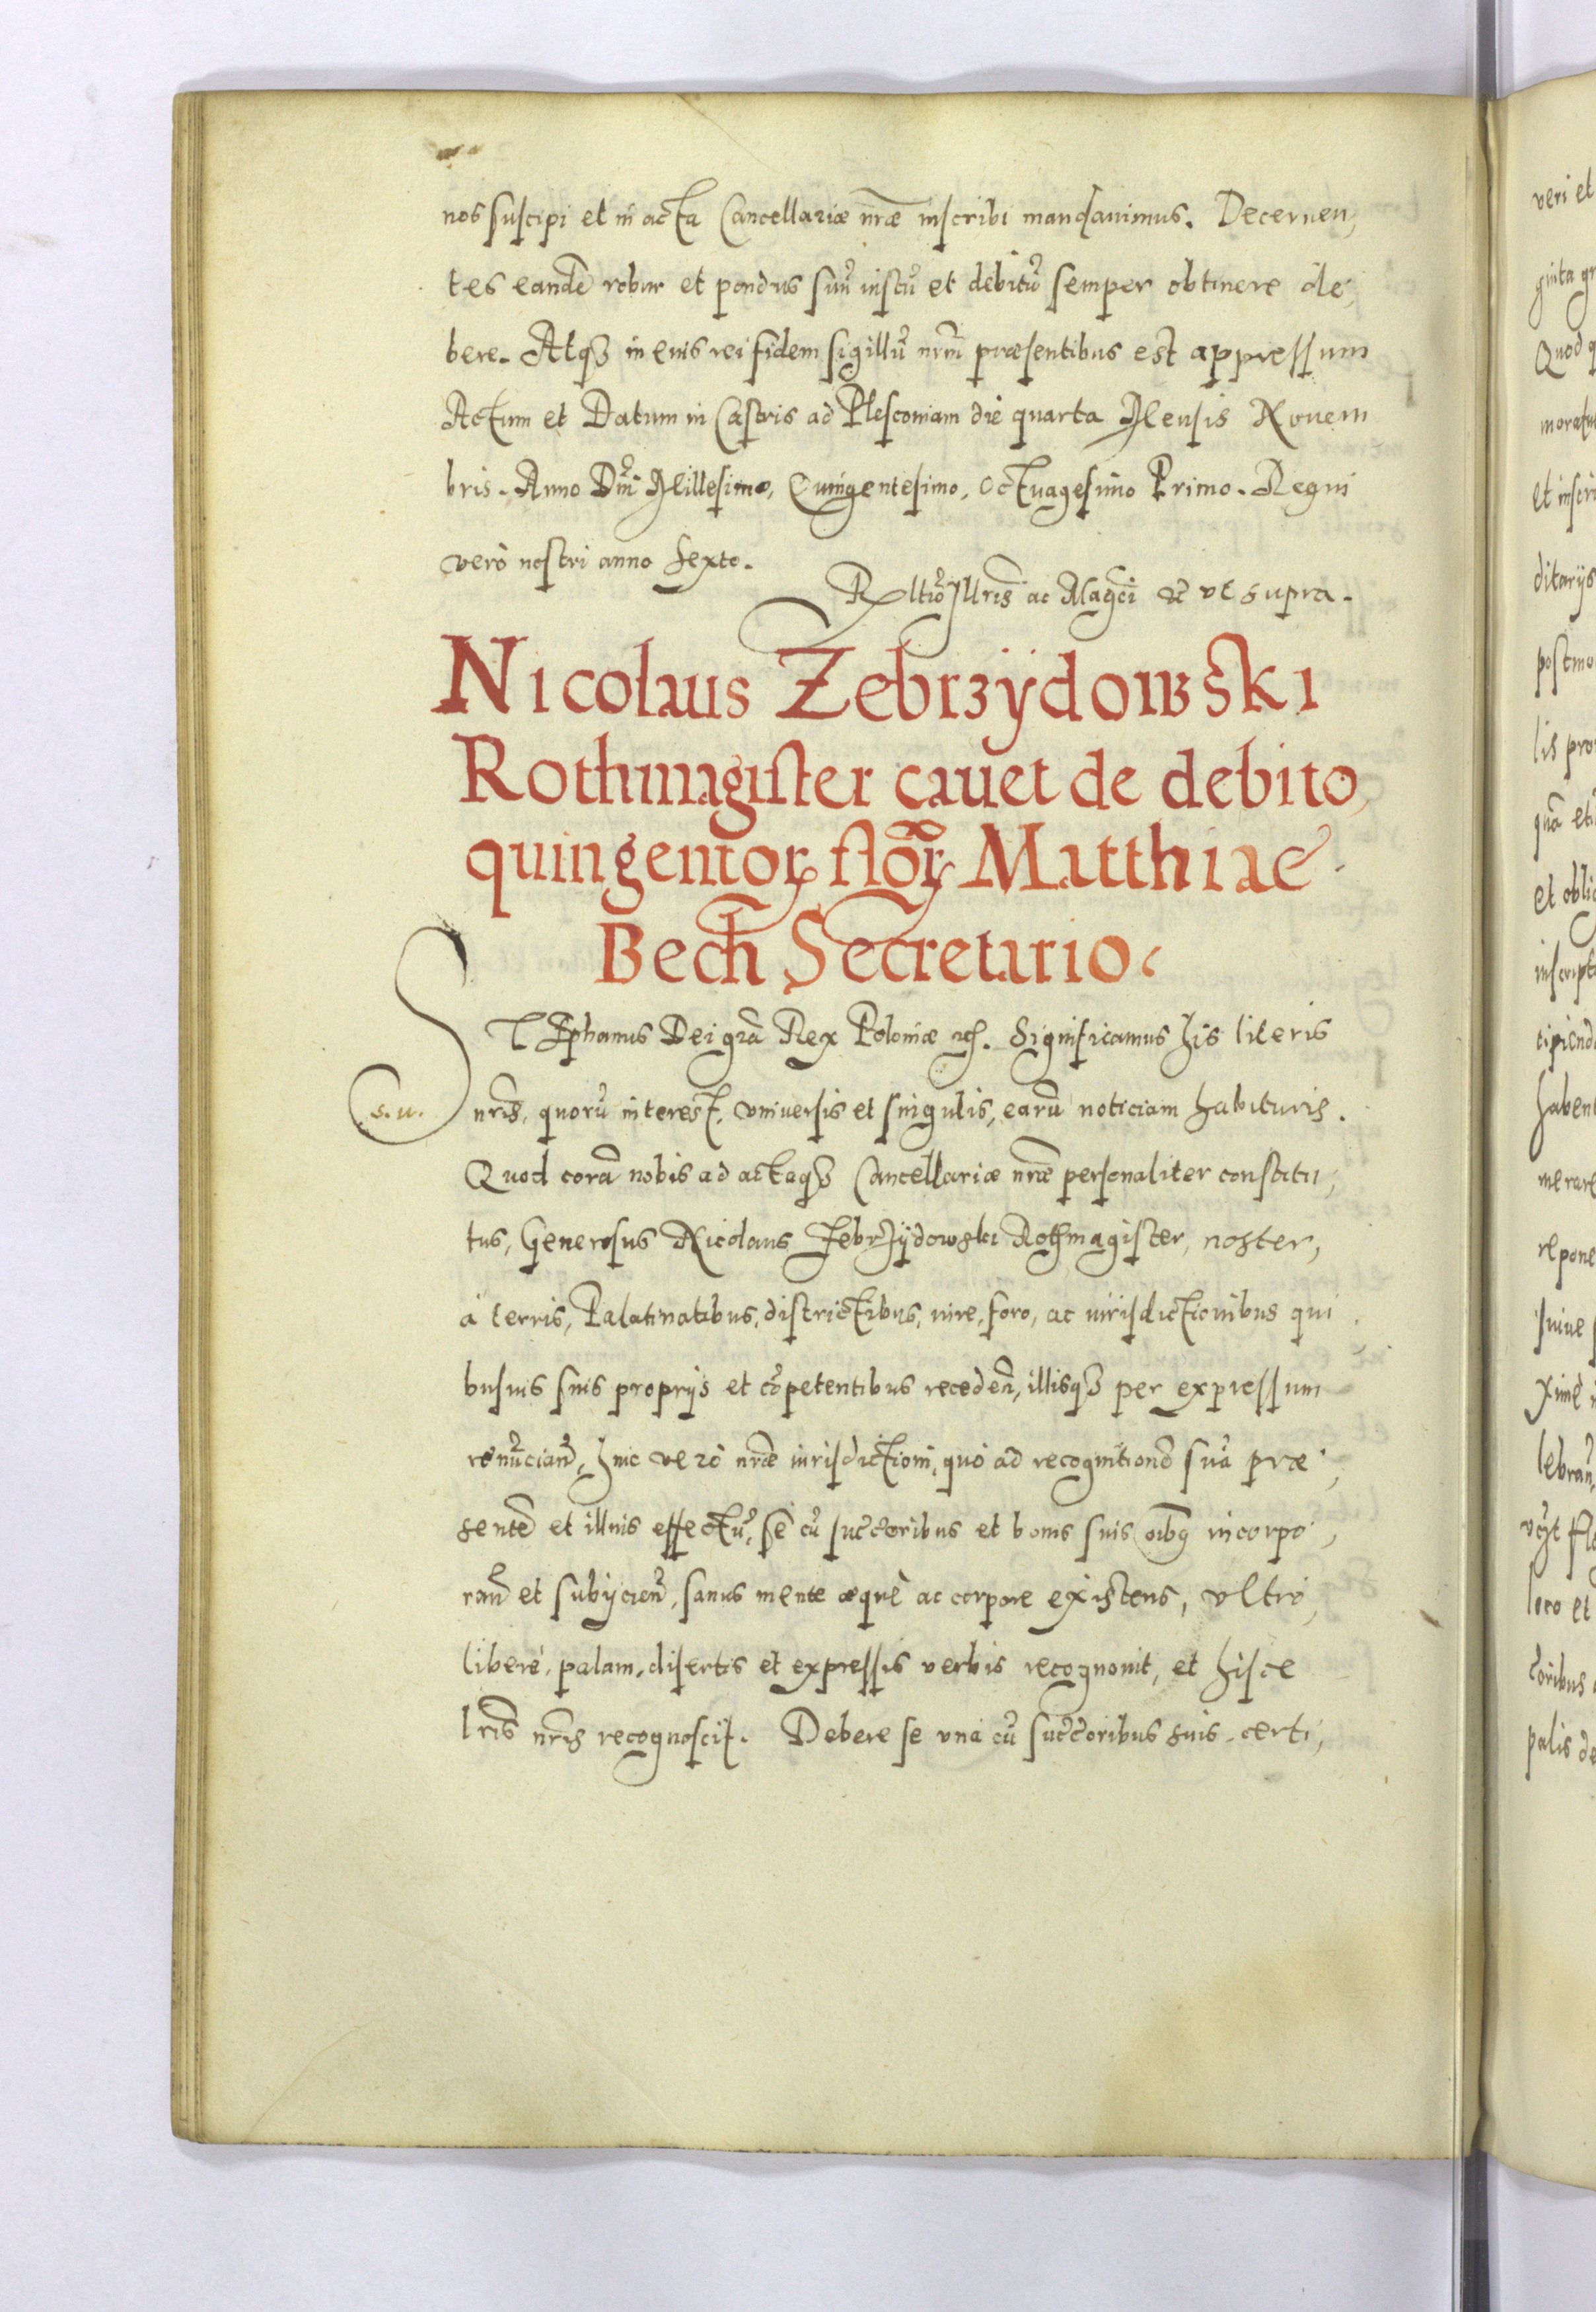 nos suscipi et in acta Cancellariæ nr̃æ inscribi mandavimus. Decernen,
tes eandẽ robur et pondus suũ iustũ et debitũ semper obtinere de,
bere. Atqȝ in eius rei fidem sigillũ nrm̃ præsentibus est appressum
Actum et Datum in Castris ad Plesconiam die quarta Mensis Novem
bris. Anno Dnĩ Millesimo, Quingentesimo, Octuagesimo Primo. Regni
verò nostri anno Sexto.
Rltiõ Jllris̃ ac Mag̃ci ut supra.
Nicolaus Zebrzÿdowski
Rothmagister cavet de debito,
quingentoꝝ floꝝ̃ Matthiae
Bech Secretario.
STEphanus Dei gr̃a Rex Poloniæ etc̃. Significamus his literis
s. u.
nris̃, quorũ interest, vniversis et singulis, earũ noticiam habituris.
Quod corã nobis ad actaqȝ Cancellariæ nr̃æ personaliter constitu,
tus, Generosus Nicolaus Zebrzÿdowski Rothmagister, noster,
à terris, Palatinatibus, districtibus, iure, foro, ac iurisdictionibus qui
busuis suis proprijs et cõpetentibus recedeñ, illisqȝ per expressum
renũcianñ, huic verò nr̃æ iurisdictioni, quò ad recognitionẽ suã præ,
sentẽ et illius effectũ, se cũ succ̃oribus et bonis suis oĩbȝ incorpo,
rañ et subijcieñ, sanus mente æquè ac corpore existens, vltrò,
liberè, palam, disertis et expressis verbis recognouit, et hisce
lris̃ nris̃ recognoscit. Debere se unà cũ succ̃oribus suis, certi,
veri et
ginta gr
Quod q
morat
et inscri
ditarijs
postmo
lis pro
quã et
et oblig
inscript
cipiend
habent
merare
repone
siue
xime
lebrañ,
loco et
toribus
palis de